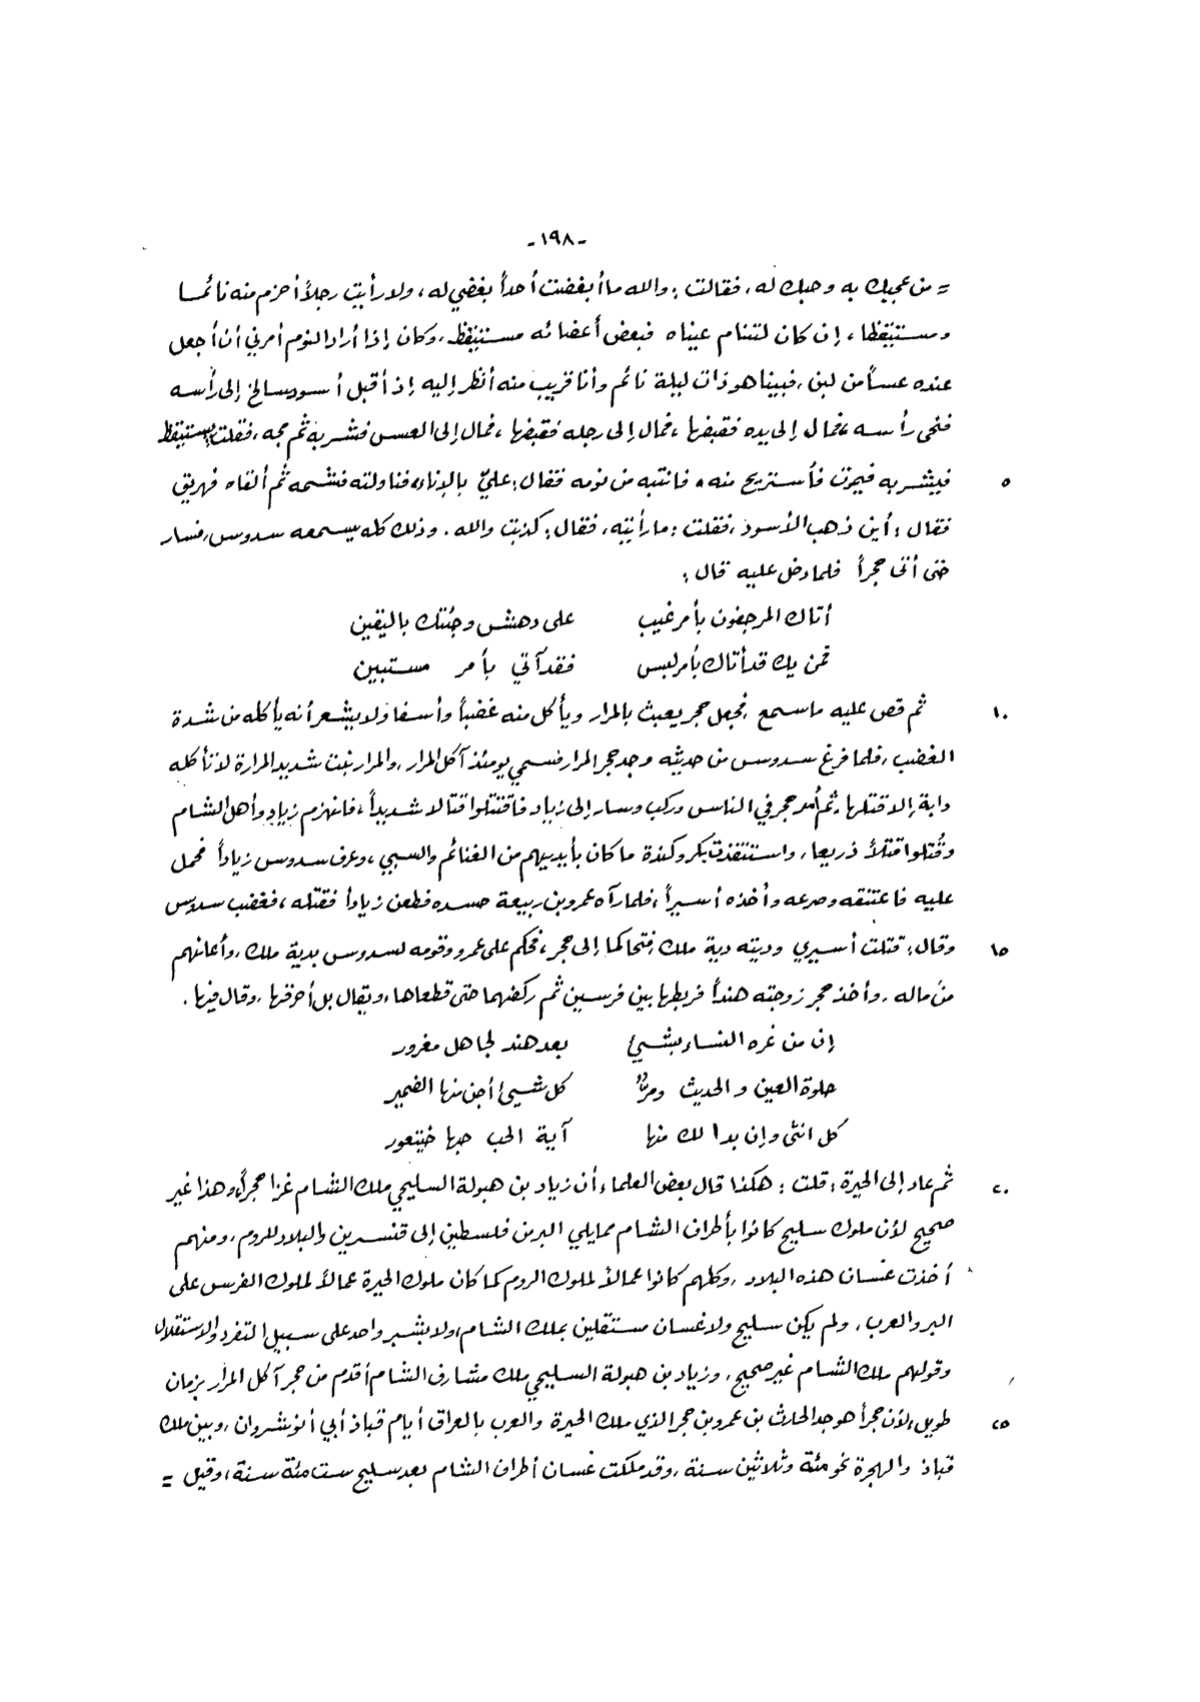 -١٩٨-
= من عجبك به وحبك له، فقالت: والله ما أبغضت أحداً بغضي له، ولا رأيت رجلاً أحزم منه نائما
ومستيقظا، إن كان لتنام عيناه فبعض أعضائه مستيقظ، وكان إذا أراد النوم أمرني أن أجعل
عنده عساً من لبن، فبينا هو ذات ليلة نائم وأنا قريب منه أنظر إليه إذ أقبل أسود سالخ إلى رأسه
فنحى رأسه، فمال إلى يده فقبضها، فمال إلى رجله فقبضها، فمال إلى العس فشربه ثم مجه، فقلت: يستيقظ
٥ فيشربه فيموت فأستريح منه، فانتبه من نومه فقال: عليّ بالإناء، فناولته فشمه ثم ألقاه فهريق
فقال: أين ذهب الأسود، فقلت: ما رأيته، فقال: كذبت والله. وذلك كله يسمعه سدوس، فسار
حتى أتى حجراً فلما دخل عليه قال:
أتاك المرجفون بأمر غيب على دهش وجئتك باليقين
فمن يك قد أتاك بأمر لبس فقد آتي بأمر مستبين
١٠ ثم قص عليه ما سمع، فجعل حجر يعبث بالمرار ويأكل منه غضباً وأسفا ولا يشعر أنه يأكله من شدة
الغضب، فلما فرغ سدوس من حديثه وجد حجر المرار فسمي يومئذ آكل المرار، والمرار نبت شديد المرارة لا تأكله
دابة إلا قتلها. ثم أمر حجر في الناس وركب وسار إلى زياد فاقتتلوا قتالا شديداً، فانهزم زياد وأهل الشام
وقُتلوا قتلاً ذريعا، واستنقذت بكر وكندة ما كان بأيديهم من الغنائم والسبي، وعرف سدوس زياداً فحمل
عليه فاعتنقه وصرعه وأخذه أسيراً، فلما رآه عمرو بن ربيعة حسده فطعن زياداً فقتله، فغضب سدوس
١٥ وقال: قتلت أسيري وديته دية ملك، فتحاكما إلى حجر، فحكم على عمرو وقومه لسدوس بدية ملك، وأعانهم
من ماله، وأخذ حجر زوجته هنداً فربطها بين فرسين ثم ركضهما حتى قطعاها، ويقال بل أحرقها، وقال فيها.
إن من غره النساء بشيئ بعد هند لجاهل مغرور
حلوة العين والحديث ومرٌّ كل شيئ أجن منها الضمير
كل انثى وإن بدا لك منها آية الحب حبها خيتعور
٢٠ ثم عاد إلى الحيرة: قلت: هكذا قال بعض العلماء أن زياد بن هبولة السليحي ملك الشام غزا حجراً، وهذا غير
صحيح لأن ملوك سليح كانوا بأطراف الشام مما يلي البر من فلسطين إلى قنسرين والبلاد للروم، ومنهم
أخذت غسان هذه البلاد، وكلهم كانوا عمالاً لملوك الروم كما كان ملوك الحيرة عمالاً لملوك الفرس على
البر والعرب، ولم يكن سليح ولا غسان مستقلين بملك الشام، ولا بشبر واحد على سبيل التفرد والاستقلال
وقولهم ملك الشام غير صحيح، وزياد بن هبولة السليحي ملك مشارف الشام أقدم من حجر آكل المرار بزمان
٢٥ طويل، لأن حجراً هو جد الحارث بن عمرو بن حجر الذي ملك الحيرة والعرب بالعراق أيام قباذ أبي أنوشروان، وبين ملك
قباذ والهجرة نحو مئة وثلاثين سنة، وقد ملكت غسان أطراف الشام بعد سليح ست مئة سنة، وقيل =